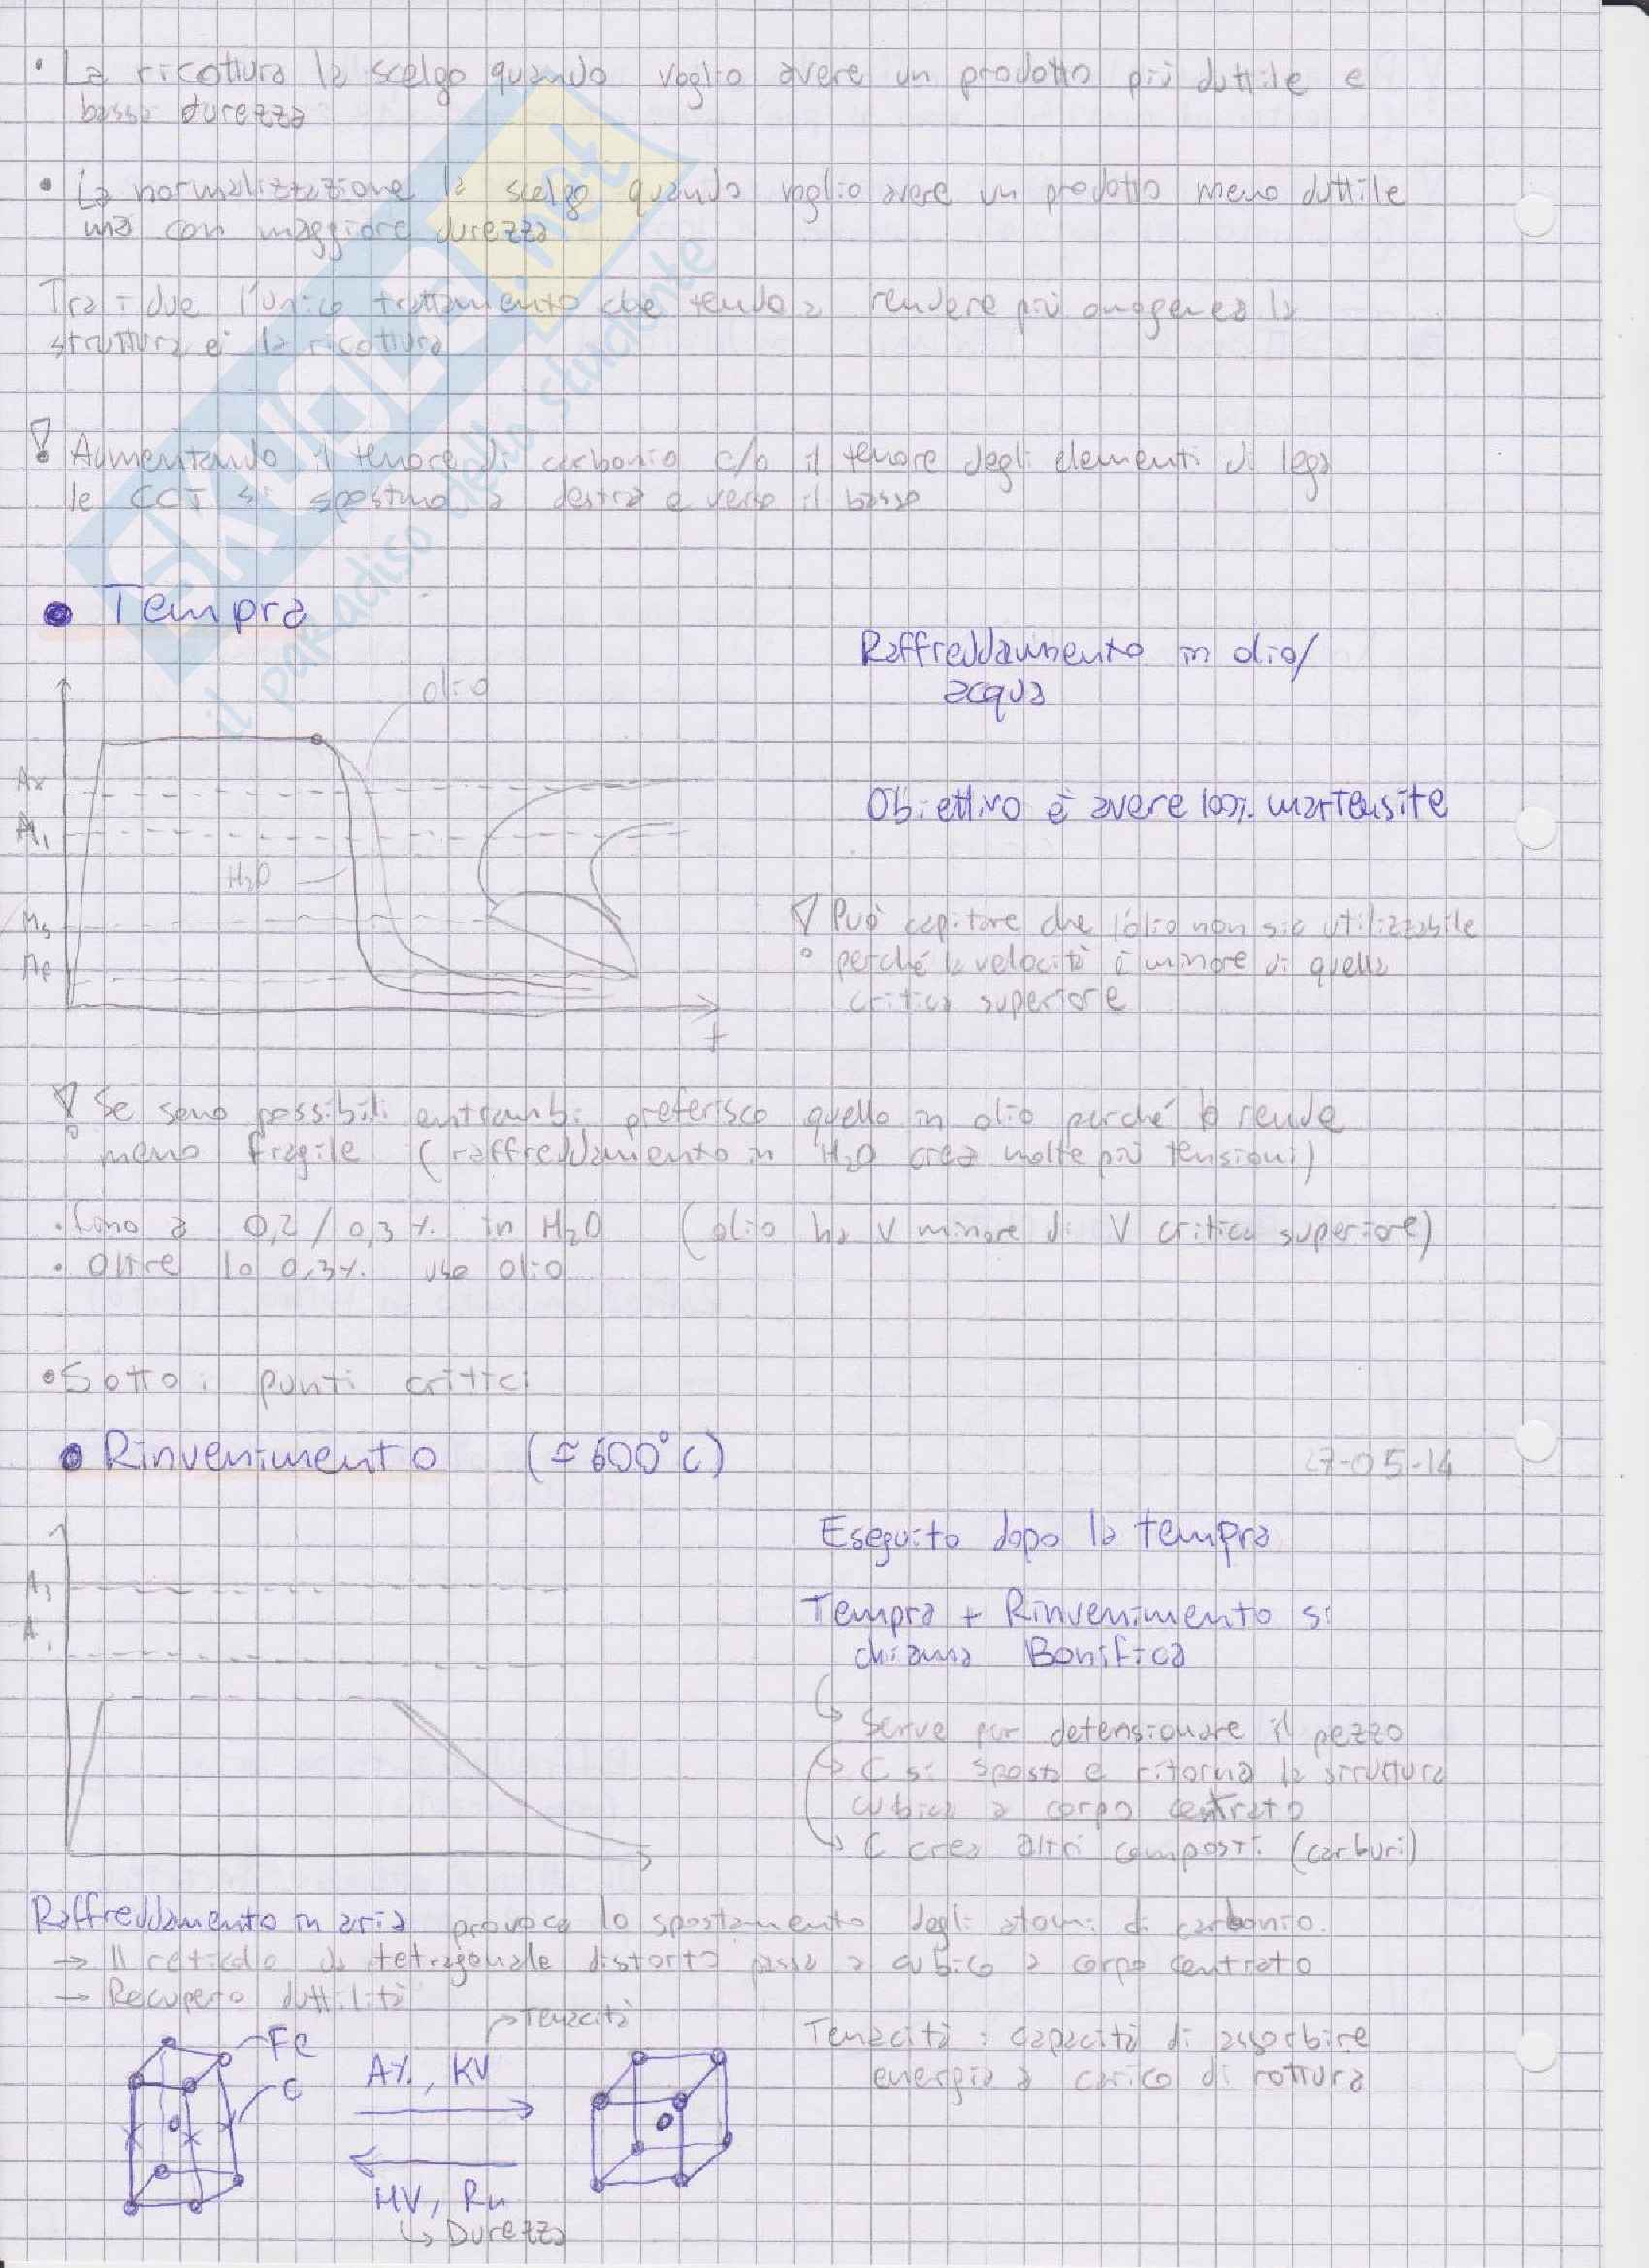 • La ricottura la scelgo quando voglio avere un prodotto più duttile e
bassa durezza
• La normalizzazione la scelgo quando voglio avere un prodotto meno duttile
ma con maggiore durezza
Tra i due l'unico trattamento che tende a rendere più omogenea la
struttura è la ricottura
! Aumentando il tenore di carbonio e/o il tenore degli elementi di lega
le CCT si spostano a destra e verso il basso
SKUOLA.net
il paradiso dello studente
• Tempra
Raffreddamento in olio/
acqua
olio
A₁
H₂O
Ms
Mf
t
Obiettivo è avere 100% martensite
! Può capitare che l'olio non sia utilizzabile
perché la velocità è minore di quella
critica superiore
! Se sono possibili entrambi preferisco quello in olio perché lo rende
meno fragile (raffreddamento in H₂O crea molte più tensioni)
• Fino a 0,2/0,3 % in H₂O (olio ha V minore di V critica superiore)
• Oltre lo 0,3% uso olio
• Sotto i punti critici
• Rinvenimento (≃ 600°C)
27-05-14
A₃
A₁
Eseguito dopo la tempra
Tempra + Rinvenimento si
chiama Bonifica
↳ Serve per detensionare il pezzo
↳ C si sposta e ritorna la struttura
cubica a corpo centrato
↳ C crea altri composti (carburi)
Raffreddamento in aria provoca lo spostamento degli atomi di carbonio.
→ Il reticolo da tetragonale distorto passa a cubico a corpo centrato
→ Recupero duttilità
Tenacità
Fe
C
A%, KV
HV, Rm
↳ Durezza
Tenacità: capacità di assorbire
energia a carico di rottura